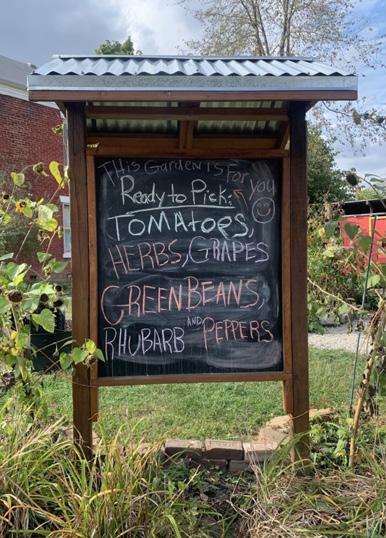 This Garden is For you
Ready to Pick:
Tomatoes,
Herbs, Grapes
Green Beans,
Rhubarb and Peppers